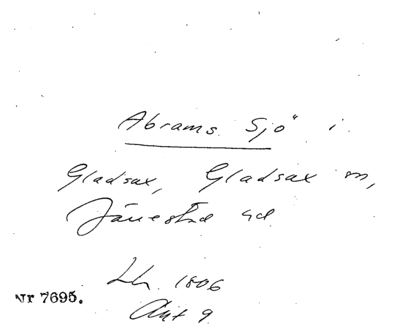 Abrams Sjö i
Gladsax, Gladsax sn,
Järrestad hd
Lh. 1806
Akt 9
Nr 7695.